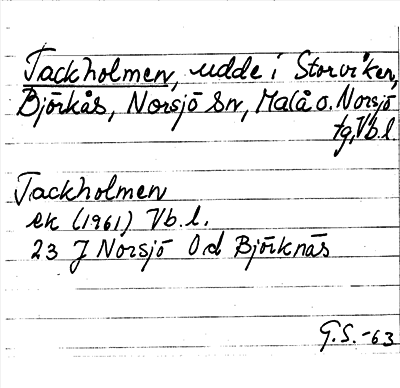 Tackholmen, udde i Storviken,
Björkås, Norsjö sn, Malå o. Norsjö
tg, Vb.l.
Tackholmen
ek (1961) Vb.l.
23 J Norsjö Od Björknäs
G.S.-63